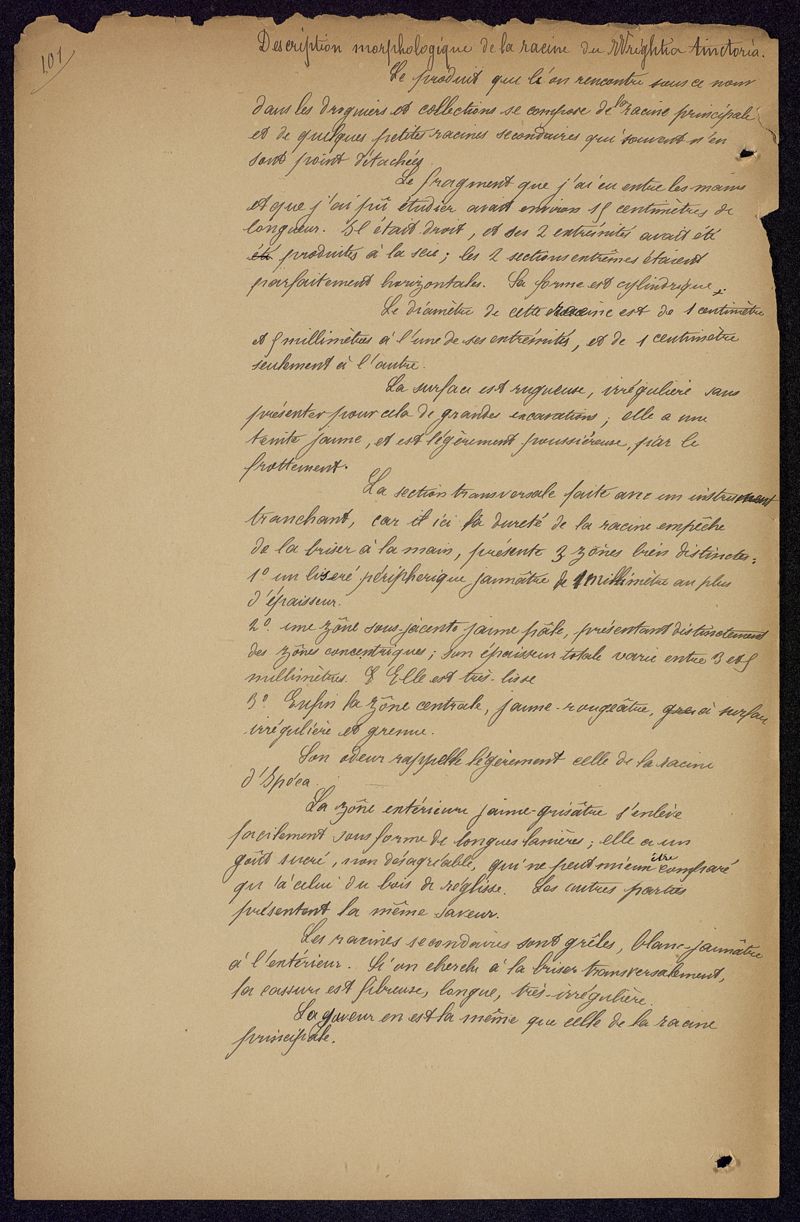 101
Description morphologique de la racine du Wrightia tinctoria.
Le produit que l'on rencontre sous ce nom
dans les droguiers et collections se compose de la racine principale
et de quelques petites racines secondaires qui souvent n'en
sont point détachées
Le fragment que j'ai eu entre les mains
et que j'ai pû étudier avait environ 15 centimètres de
longueur. Il était droit, et ses 2 extrémités avait été
été produites à la scie ; les 2 sections extrêmes étaient
parfaitement horizontales. Sa forme est cylindrique.
Le diamètre de cette racine est de 1 centimètre
et 5 millimètres à l'une de ses extrémités, et de 1 centimètre
seulement à l'autre.
La surface est rugueuse, irrégulière sans
présenter pour cela de grandes excavations ; elle a une
teinte jaune, et est légèrement poussiéreuse, par le
frottement.
La section transversale faite avec un instrument
tranchant, car ici la dureté de la racine empêche
de la briser à la main, présente 3 zônes bien distinctes :
1º un liseré périphérique jaunâtre de 1 millimètre au plus
d'épaisseur.
2º. une zône sous-jacente jaune pâle, présentant distinctement
des zônes concentriques ; son épaisseur totale varie entre 3 et 5
millimètres. Elle est très-lisse
3º Enfin la zône centrale, jaune-rougeâtre, à surface
irrégulière et grenue.
Son odeur rappelle légèrement celle de la racine
d'Ipéca.
La zône extérieure jaune-grisâtre s'enlève
facilement sous forme de longues lanières ; elle a un
goût sucré, non désagréable, qui ne peut mieux être comparé
qu'à celui du bois de réglisse. Les autres parties
présentent la même saveur.
Les racines secondaires sont grêles, blanc-jaunâtre
à l'extérieur. Si on cherche à la briser transversalement,
la cassure est fibreuse, longue, très-irrégulière.
La saveur en est la même que celle de la racine
principale.